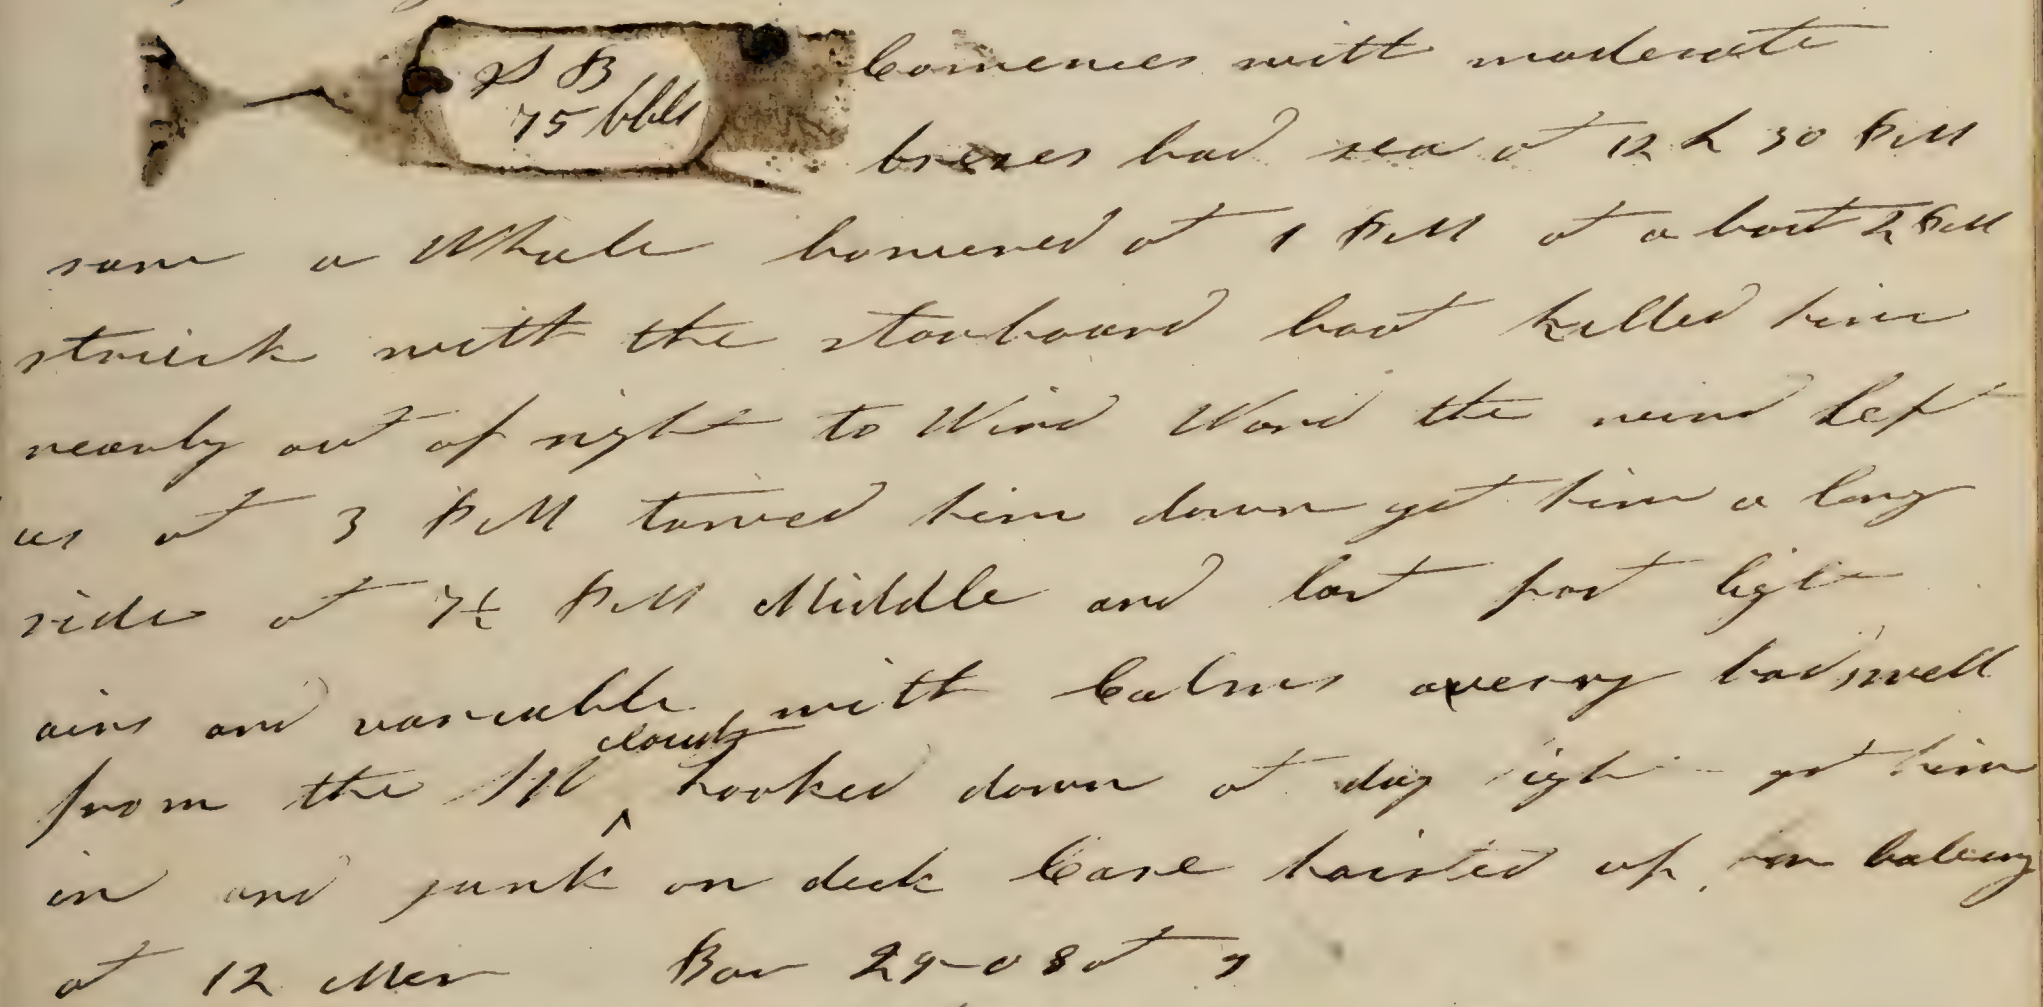 S B
75 bbls
Comences with moderate
breezes bad sea at 12 h 30 P.M
saw a Whale lowered at 1 P.M at a bout 2 P.M
struck with the starboard boat killed him
nearly out of sight to Wind Ward the wind left
us at 3 P.M towed him down got him a long
side at 7½ P.M Middle and last part light
airs and variable with Calms a very bad swell
from the cloudy hooked down at day light got him
in and junk on deck Case hoisted up for baleing
at 12 Mer Bar 29-08 at